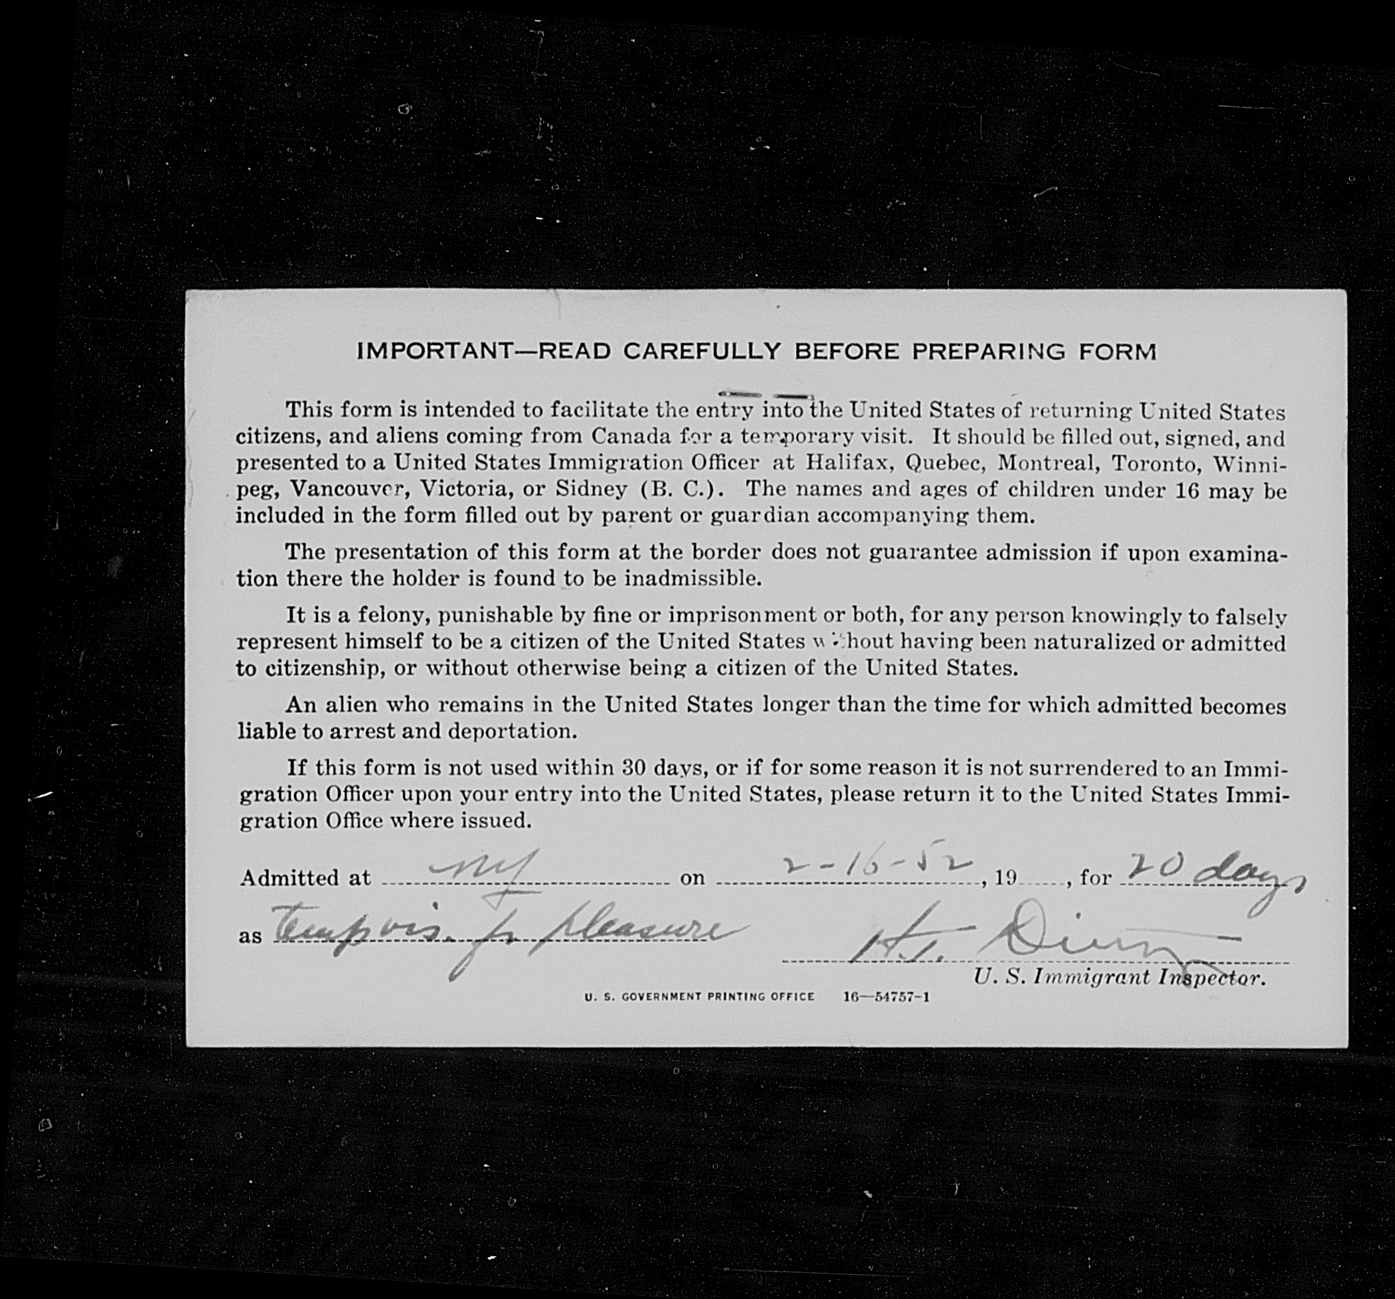 IMPORTANT—READ CAREFULLY BEFORE PREPARING FORM
This form is intended to facilitate the entry into the United States of returning United States
citizens, and aliens coming from Canada for a temporary visit. It should be filled out, signed, and
presented to a United States Immigration Officer at Halifax, Quebec, Montreal, Toronto, Winni-
peg, Vancouver, Victoria, or Sidney (B. C.). The names and ages of children under 16 may be
included in the form filled out by parent or guardian accompanying them.
The presentation of this form at the border does not guarantee admission if upon examina-
tion there the holder is found to be inadmissible.
It is a felony, punishable by fine or imprisonment or both, for any person knowingly to falsely
represent himself to be a citizen of the United States without having been naturalized or admitted
to citizenship, or without otherwise being a citizen of the United States.
An alien who remains in the United States longer than the time for which admitted becomes
liable to arrest and deportation.
If this form is not used within 30 days, or if for some reason it is not surrendered to an Immi-
gration Officer upon your entry into the United States, please return it to the United States Immi-
gration Office where issued.
Admitted at NY on 2-16-52, 19 , for 20 days
as temp vis. for pleasure H.T.
U. S. Immigrant Inspector.
U. S. GOVERNMENT PRINTING OFFICE 16—54757-1